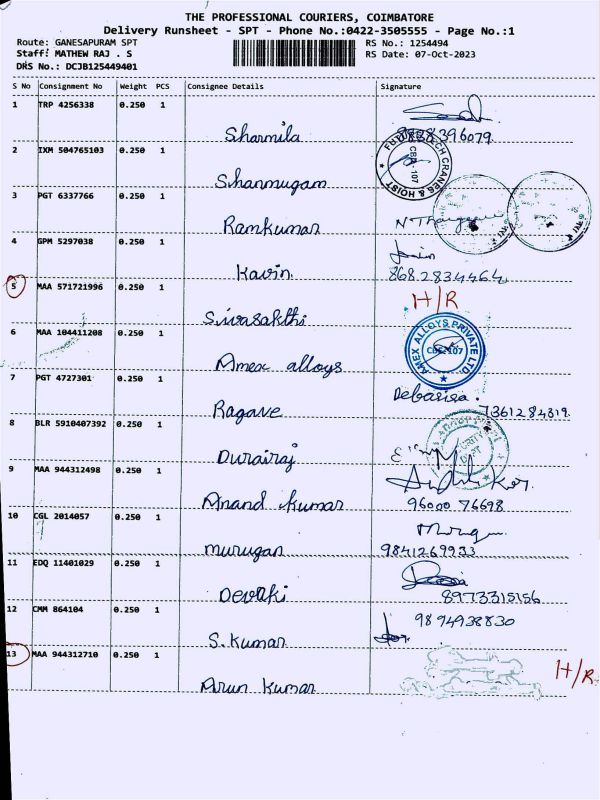 THE PROFESSIONAL COURIERS, COIMBATORE
Delivery Runsheet - SPT - Phone No.:0422-3505555 - Page No.:1
Route: GANESAPURAM SPT RS No.: 1254494
Staff: MATHEW RAJ . S RS Date: 07-Oct-2023
DRS No.: DCJB125449401
S No Consignment No Weight PCS Consignee Details Signature
1 TRP 4256338 0.250 1
Sharmila 9898396079
2 IXM 504765103 0.250 1
FUTURETECH CRANES & HOIST CBE-107
Shanmugam
3 PGT 6337766 0.250 1
Ramkumar
4 GPM 5297038 0.250 1
Kavin 8682834464
5 MAA 571721996 0.250 1 H/R
Sivasakthi
6 MAA 104411208 0.250 1 AMEX ALLOYS PRIVATE LTD. CBE-107
Amex alloys
7 PGT 4727301 0.250 1 Debasisa.
Ragave 7361284319.
8 BLR 5910407392 0.250 1
Durairaj
9 MAA 944312498 0.250 1
Anand kumar 96000 76698
10 CGL 2014057 0.250 1
murugan 9841269933
11 EDQ 11401029 0.250 1
Devaki 8973315156
12 CMM 864104 0.250 1 9894938830
S.Kumar
13 MAA 944312710 0.250 1 H/R
Arun kumar